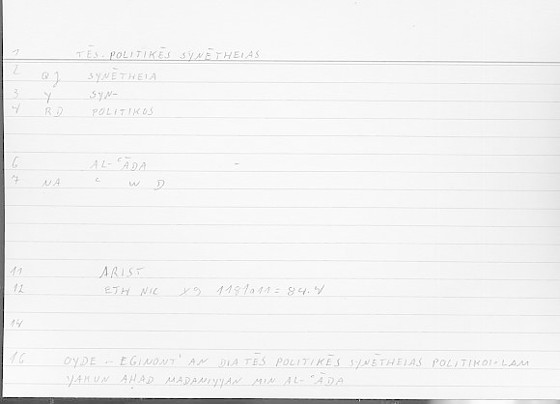 1 TĒS POLITIKĒS SYNĒTHEIAS
2 QJ SYNĒTHEIA
3 Y SYN-
4 RD POLITIKOS
6 AL-ʿĀDA -
7 NA ʿ W D
11 ARIST
12 ETH NIC X9 1181a11 = 84.4
14
16 OYDE – EGINONT' AN DIA TĒS POLITIKĒS SYNĒTHEIAS POLITIKOI – LAM
YAKUN AHAD MADANIYYAN MIN AL-ʿĀDA